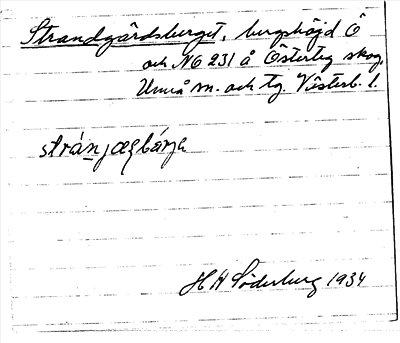 Strandgärdsberget, bergshöjd Ö
och NO 231 å Österteg skog,
Umeå sn. och tg. Västerb. l.
H H Söderberg 1934